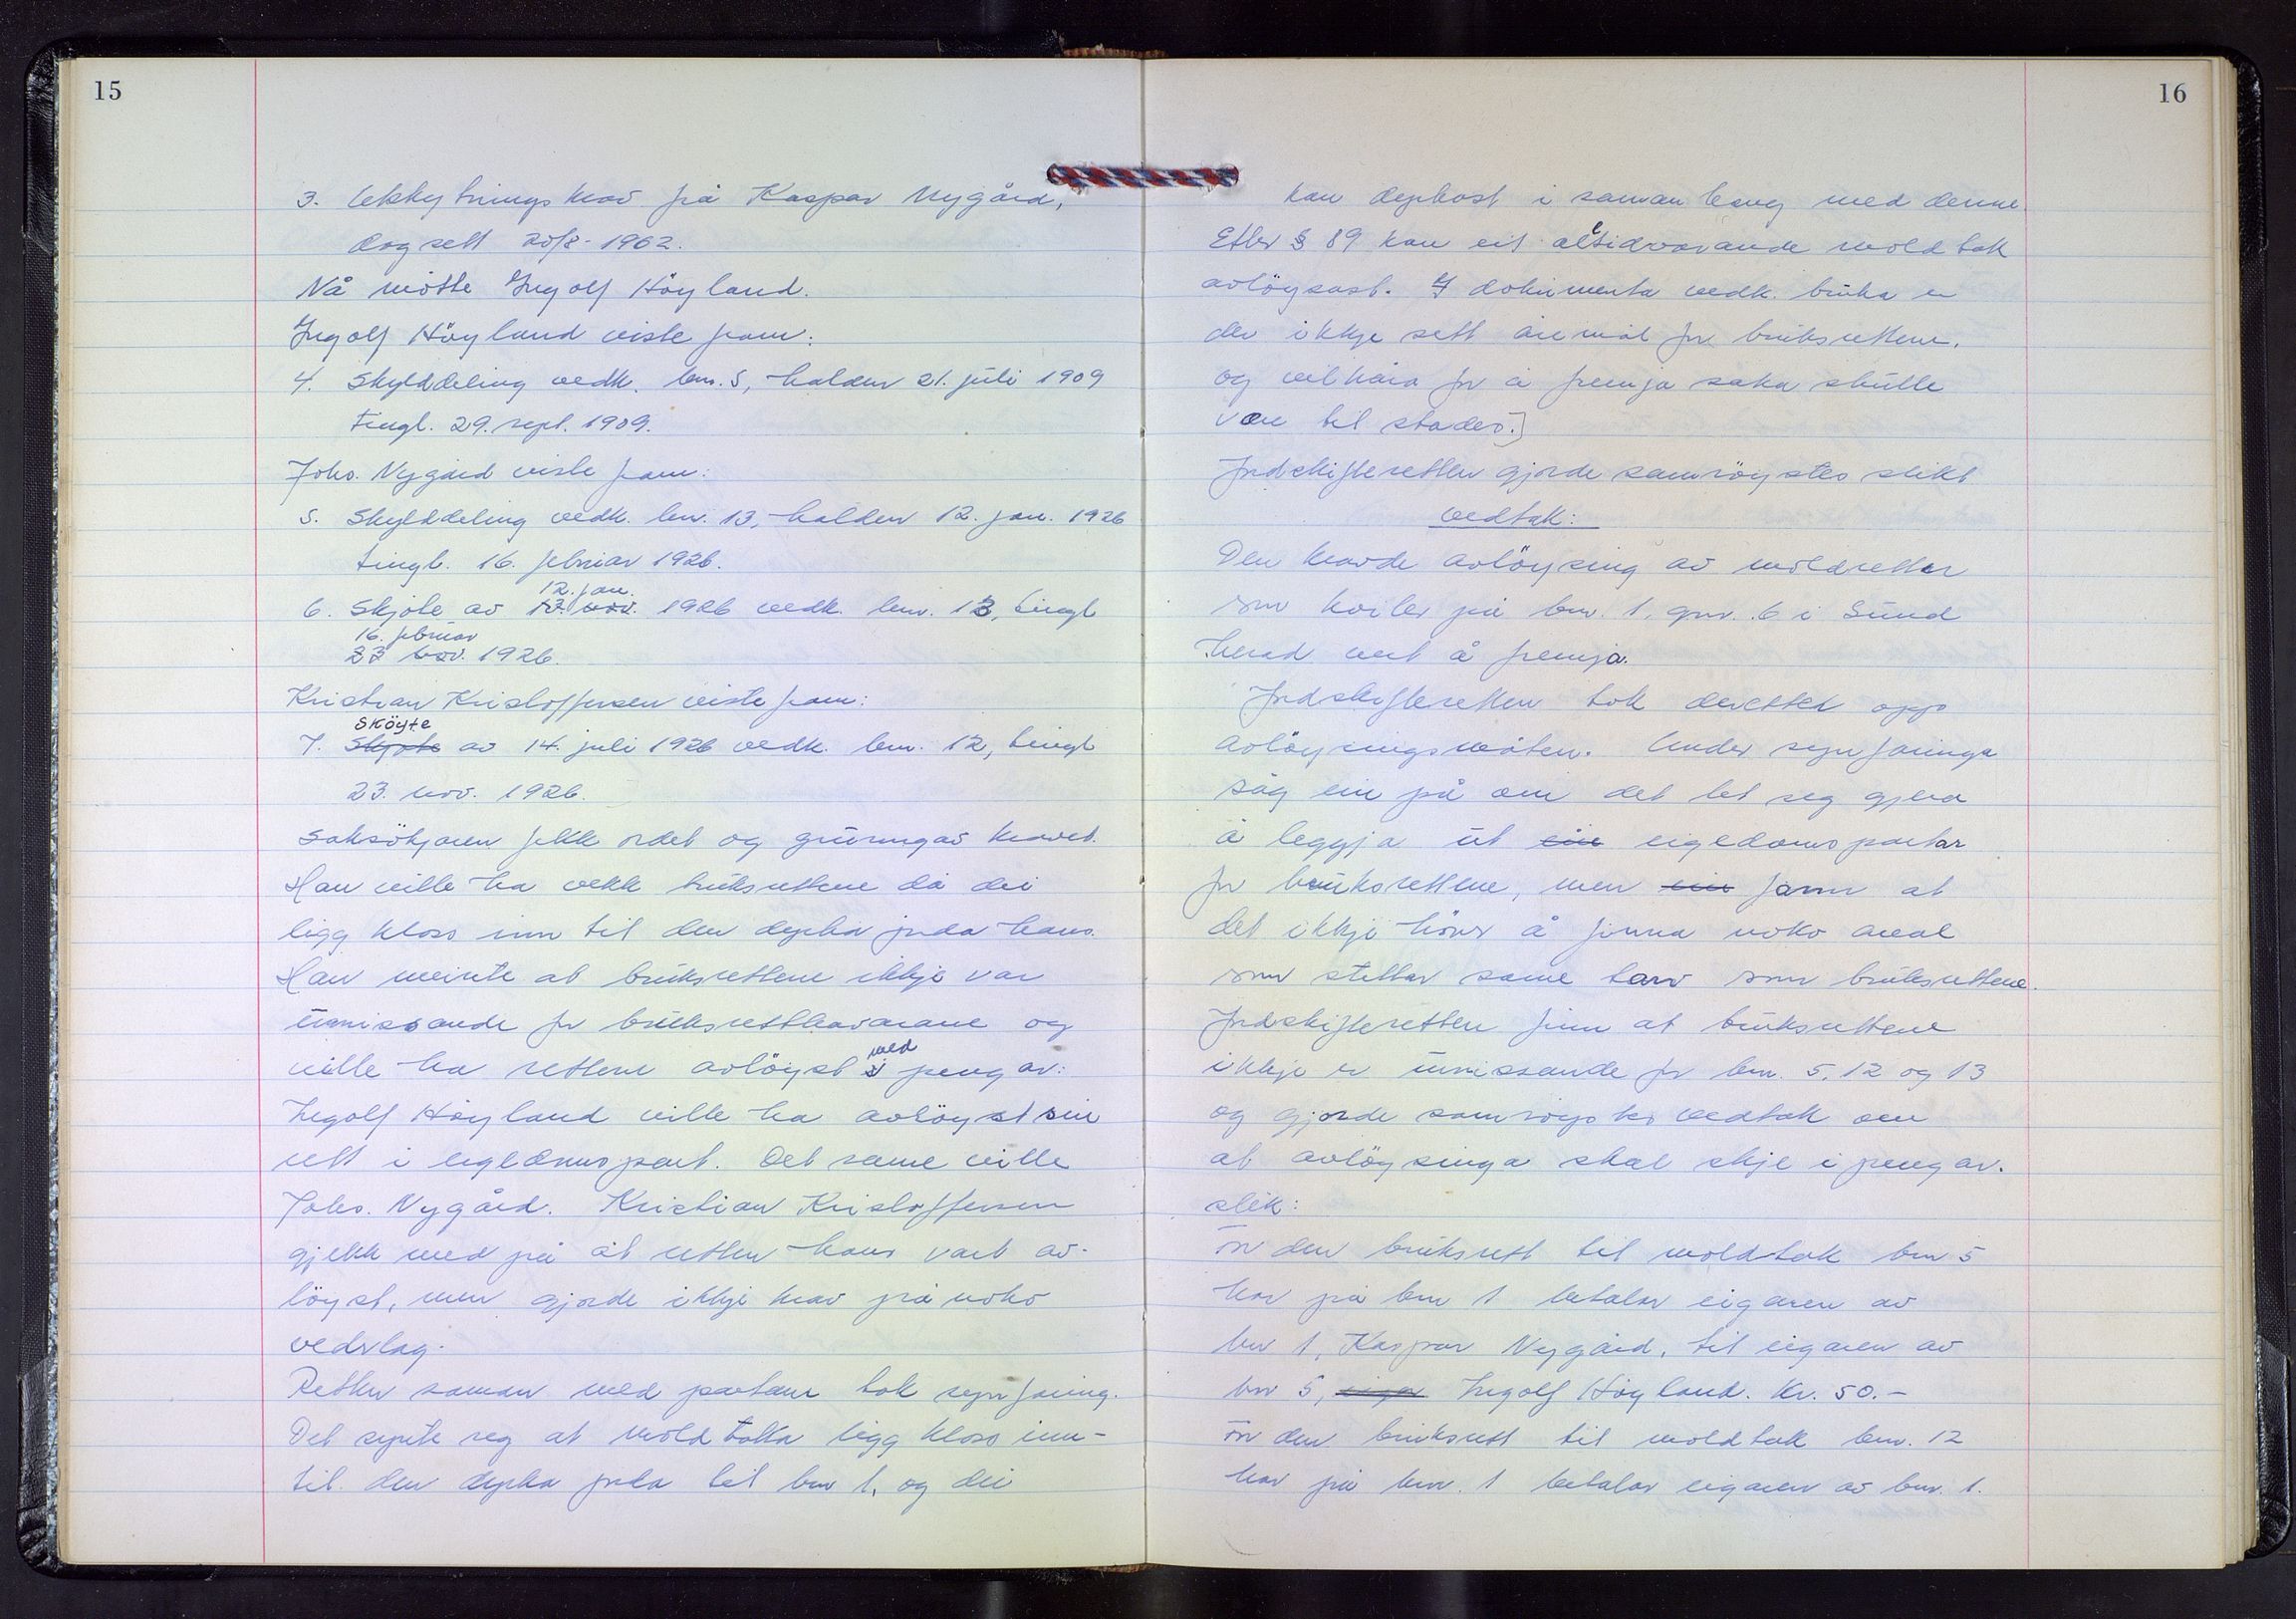 15
3. Utskytnings krav frå Kaspar Nygård,
dagsett 20/8-1962.
Nå møtte Ingolf Höyland.
Ingolf Höyland viste fram:
4. Skylddeling vedk. bnr. 5, halden 21. júli 1909
tingl. 29. sept. 1909.
Johs. Nygård viste fram:
5. Skylddeling vedk. bnr. 13, halden 12. jan. 1926
tingl. 16. februar 1926.
12. jan.
6. Skjøte av 1926 vedk. bnr. 13, tingl
16. februar
23 nov. 1926.
Kristian Kristoffersen viste fram:
Sköyte
7. Skjøte av 14. juli 1926 vedk. bnr. 12, tingl
23. nov. 1926.
Saksökjaren fekk ordet og grunngav kravet.
Han ville ha vekk brúksrettene då dei
ligg kloss inn til den dyrka jorda hans.
Han meinte at brúksrettene ikkje var
úmissande for brúksretthavarane og
med
ville ha rettene avlöyst i pengar.
Ingolf Höyland ville ha avlöyst sin
rett i eigedomspart. Det same ville
Johs. Nygård. Kristian Kristoffersen
gjekk med på at retten hans vart av-
löyst, men gjorde ikkje krav på noko
vederlag.
Retten saman med partane tok synfaring.
Det synte seg at moldtaka ligg kloss inn-
til den dyrka jorda til bnr 1, og dei
16
kan dyrkast i samanheng med denne.
Etter § 89 kan eit alltidvarande moldtak
avlöysast. I dokumenta vedk. brúka er
der ikkje sett åremål for brúksrettene,
og vilkåra for å fremja saka skulle
vere til stades.]
Jordskifteretten gjorde samröystes slikt
vedtak:
Den kravde avlöysing av moldretter
som kviler på bnr. 1, gnr. 6 i Sund
herad vert å fremja.
Jordskifteretten tok deretter opp
avlöysingsmåten. Under synfaringa
såg ein på om det let seg gjera
å leggja út ein eigedomspartar
for brúksrettene, men ein fann at
det ikkje höver å finna noko areal
som stettar same tarv som brúksrettene.
Jordskifteretten finn at brúksrettene
ikkje er úmissande for bnr. 5, 12 og 13
og gjorde samröystes vedtak om
at avlöysinga skal skje i pengar.
slik:
For den brúksrett til moldtak bnr 5
har på bnr 1 betalar eigaren av
bnr 1, Kaspar Nygård, til eigaren av
bnr 5, eigar Ingolf Höyland. Kr. 50.-
For den brúksrett til moldtak bnr. 12
har på bnr. 1 betalar eigaren av bnr. 1.